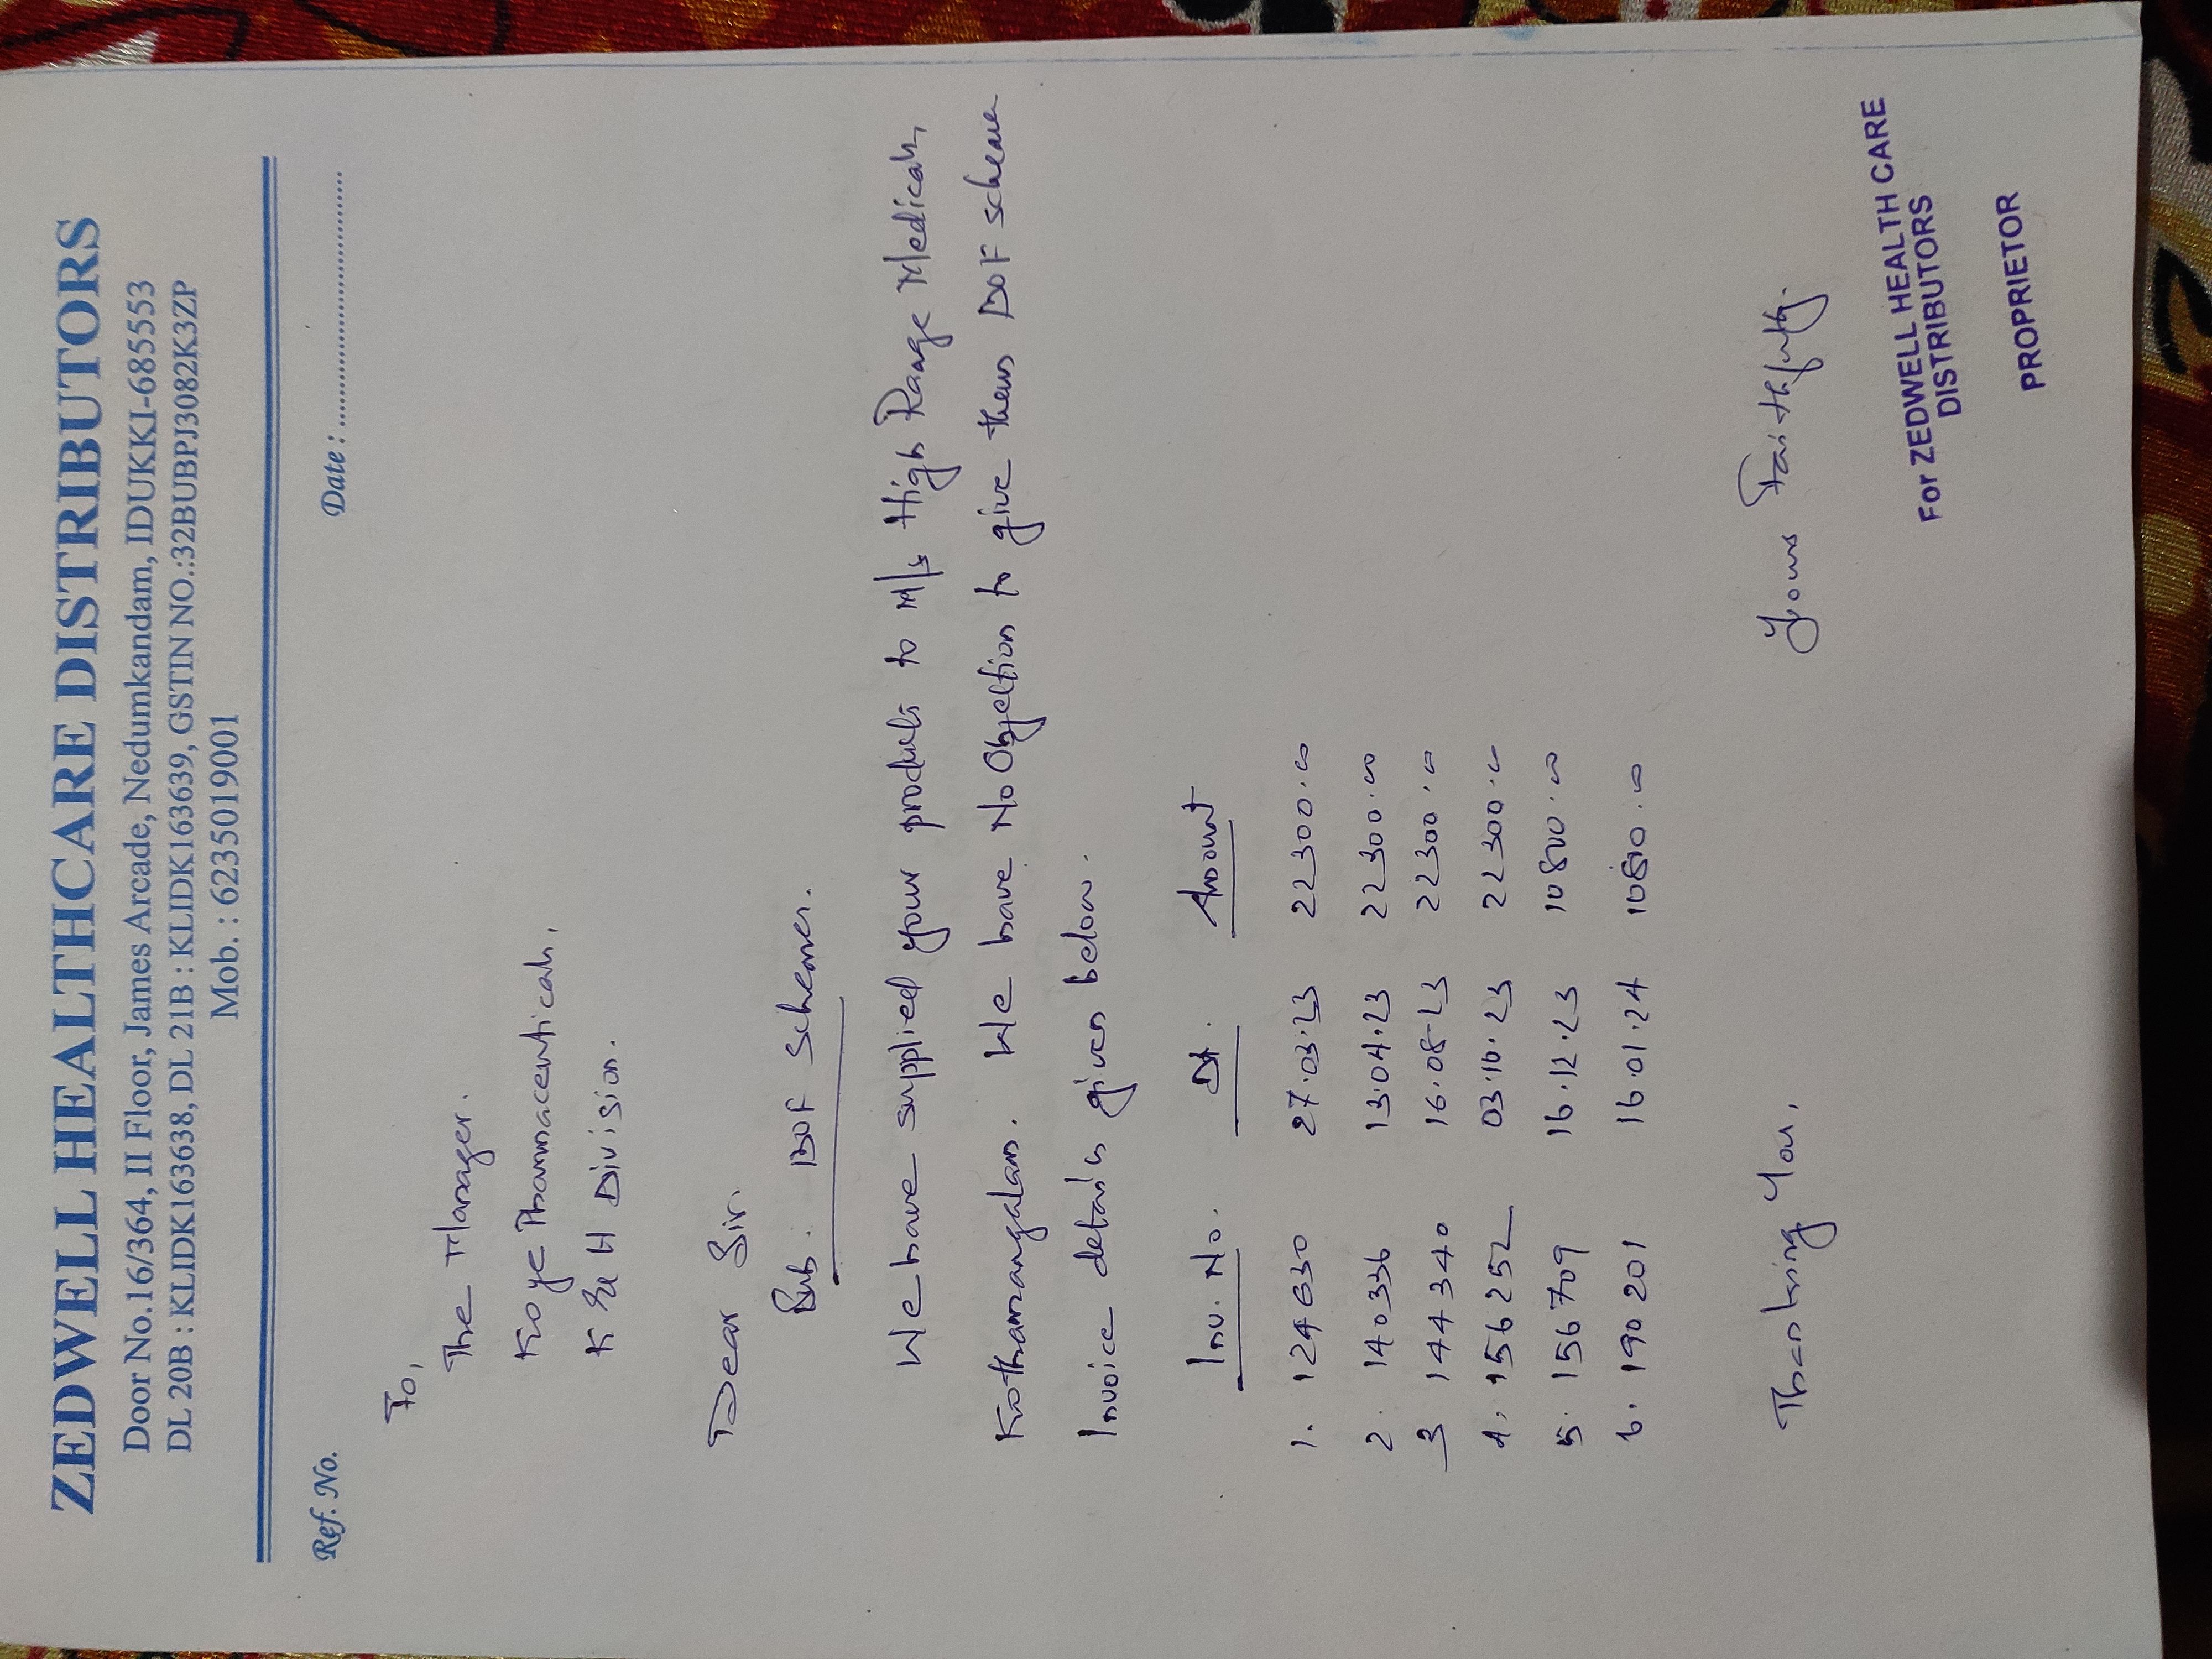 ZEDWELL HEALTHCARE DISTRIBUTORS
Door No.16/364, II Floor, James Arcade, Nedumkandam, IDUKKI-685553
DL 20B : KLIDK163638, DL 21B : KLIDK163639, GSTIN NO.:32BUBPJ3082K3ZP
Mob. : 6235019001
Ref. No. Date : ..............................
To,
The Manager.
Koye Pharmaceuticals,
K&H Division.
Dear Sir.
Sub. BOF Schemes.
We have supplied your products to M/s High Range Medicals,
Kothamangalam. We have No Objection to give them BOF scheme
Invoice details given below.
Inv. No. Dt. Amount
1. 124630 27.03.23 22300.00
2. 140336 13.04.23 22300.00
3 144340 16.08.23 22300.00
4. 156252 03.10.23 22300.00
5. 156709 16.12.23 10800.00
6. 190201 16.01.24 10800.00
Thanking You,
Yours Faithfully.
For ZEDWELL HEALTH CARE
DISTRIBUTORS
PROPRIETOR